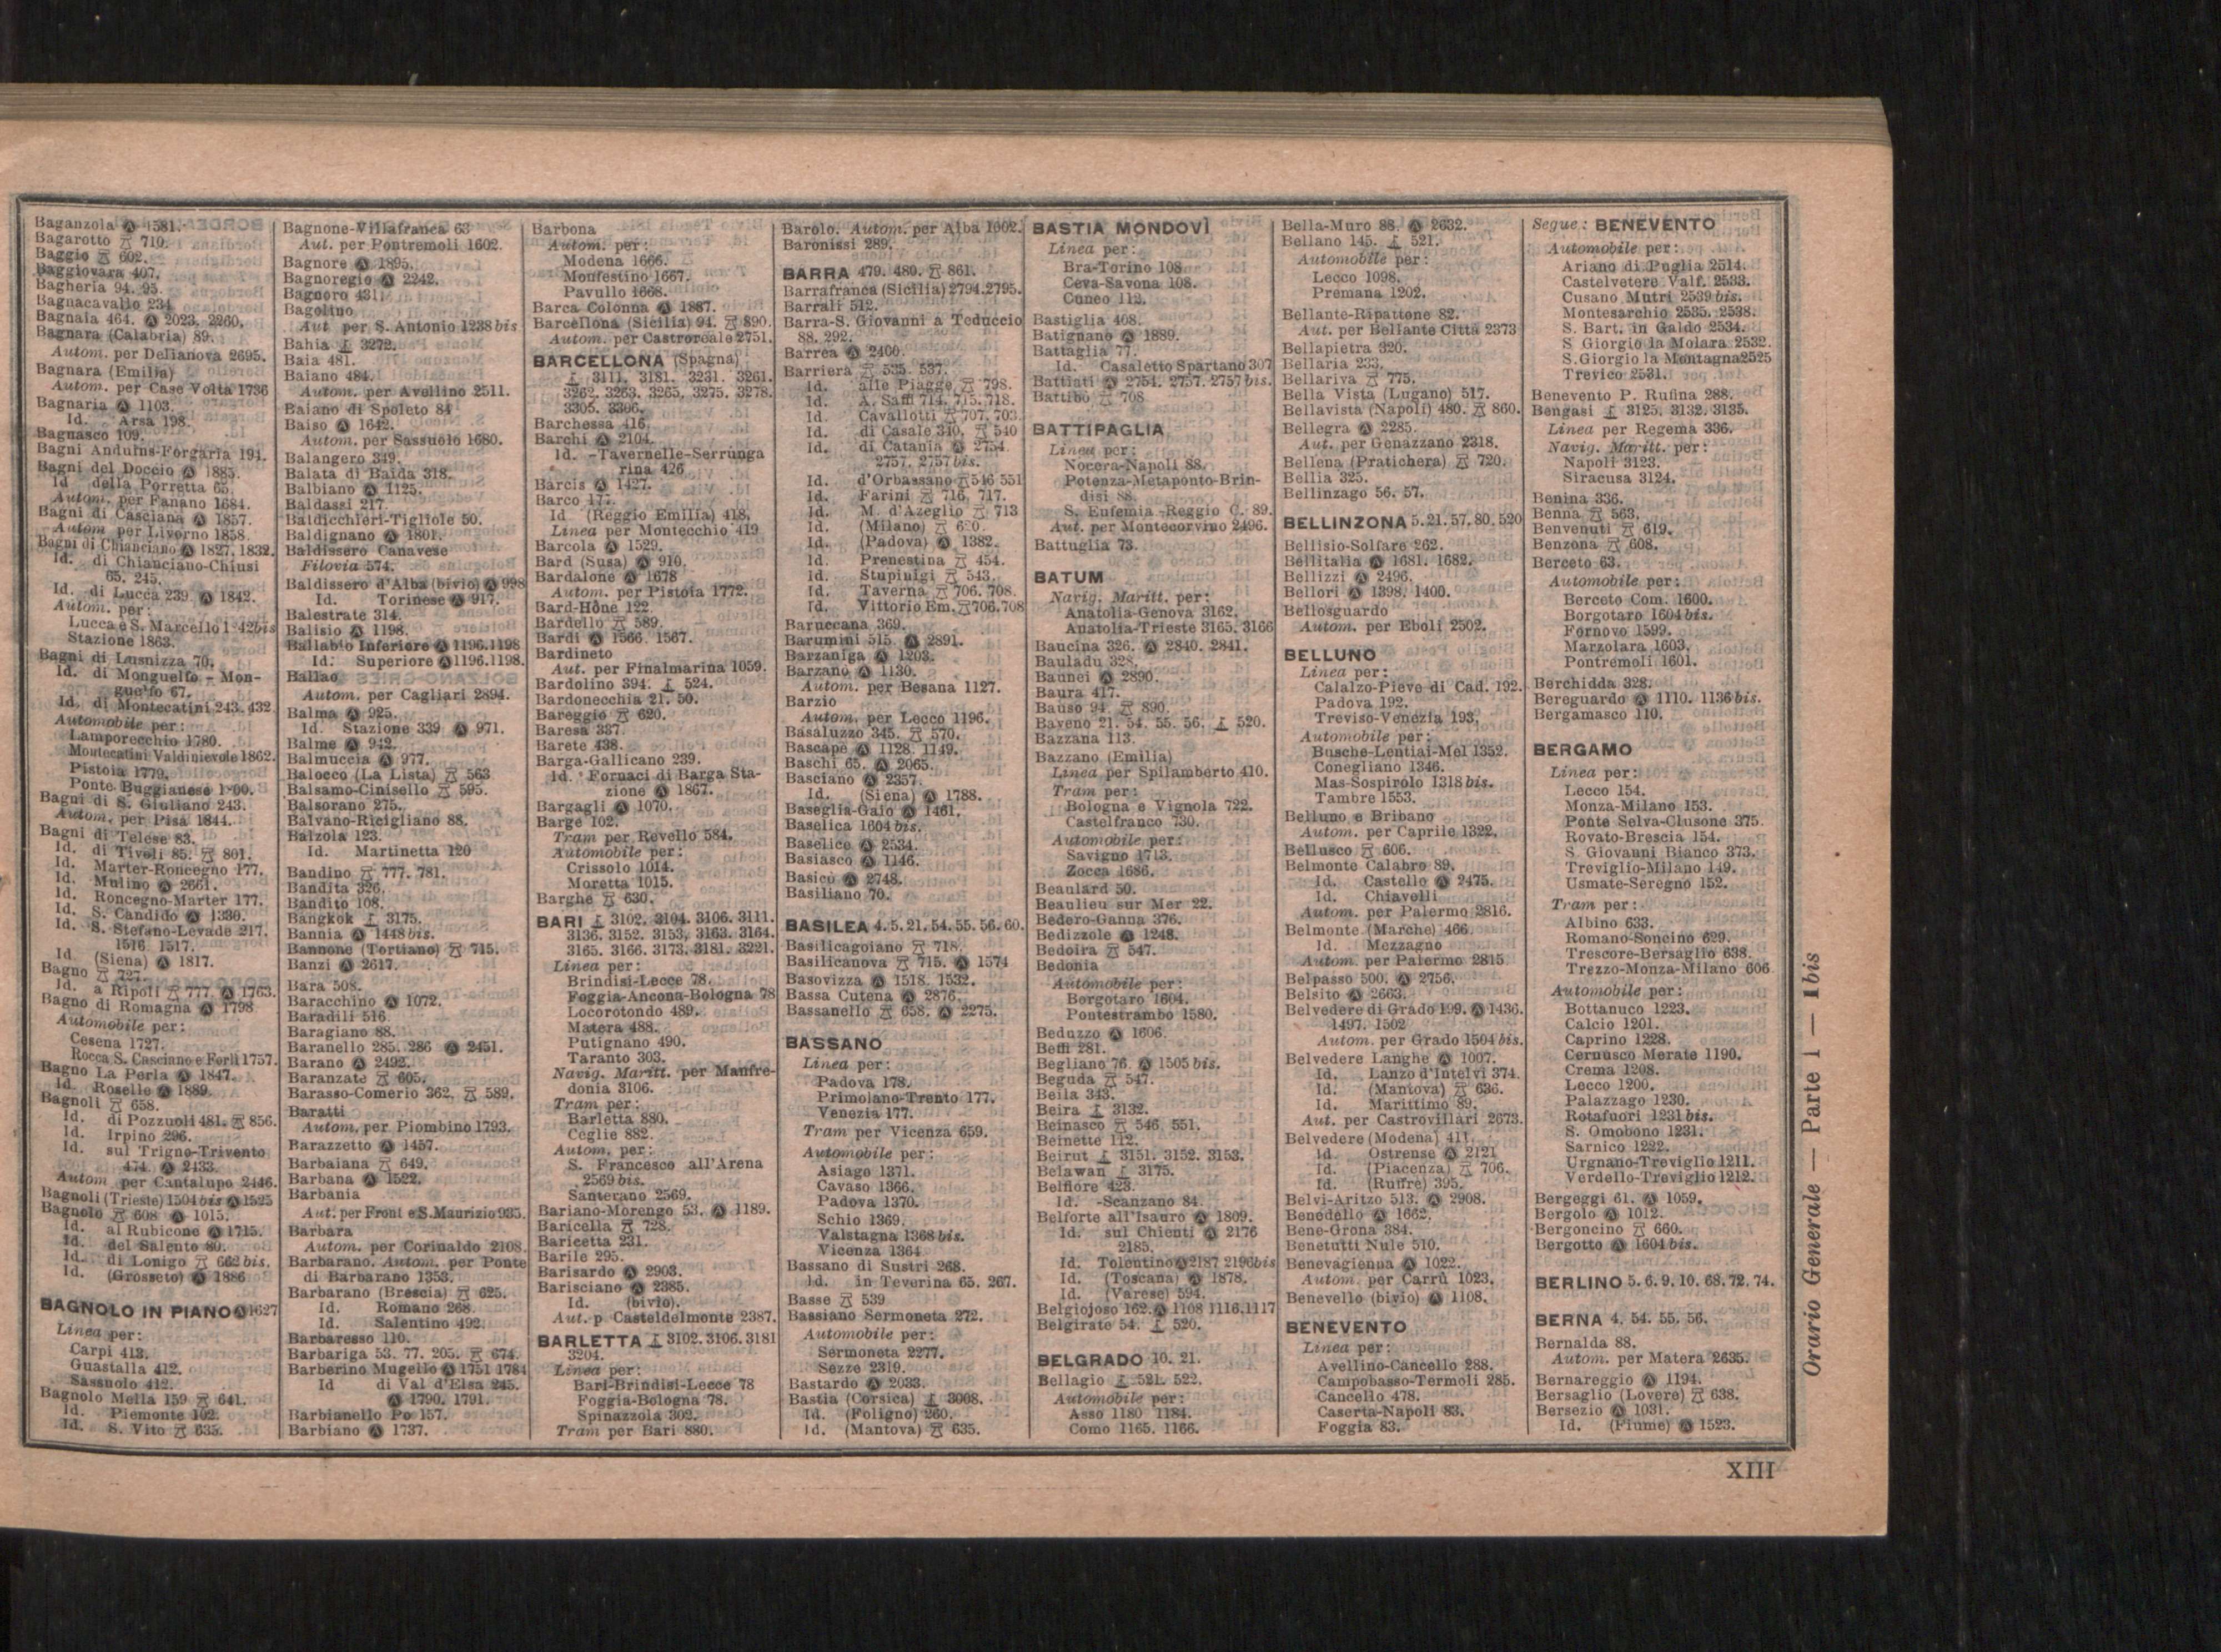 Baganzola Ⓐ 1581.
Bagarotto 710.
Baggio 602.
Baggiovara 407.
Bagheria 94. 95.
Bagnacavallo 234
Bagnaia 464. Ⓐ 2023. 2260.
Bagnara (Calabria) 89.
Autom. per Delianova 2695.
Bagnara (Emilia)
Autom. per Case Volta 1736
Bagnaria Ⓐ 1103
Id. Arsa 198.
Bagnasco 109.
Bagni Anduins-Forgaria 194.
Bagni del Doccio Ⓐ 1885.
Id della Porretta 65.
Autom. per Fanano 1684.
Bagni di Casciana Ⓐ 1857.
Autom per Livorno 1858.
Bagni di Chianciano Ⓐ 1827. 1832.
Id. di Chianciano-Chiusi
65. 245.
Id. di Lucca 239. Ⓐ 1842.
Autom. per:
Lucca e S. Marcello
Stazione 1863.
Bagni di Lusnizza 70.
Id. di Monguelfo - Mon-
guelfo 67.
Id. di Montecatini 243. 432
Automobile per:
Lamporecchio 1780.
Montecatini Valdinievole 1862.
Pistoia 1779.
Ponte Buggianese
Bagni di S. Giuliano 243.
Autom. per Pisa 1844.
Bagni di Telese 83.
Id. di Tivoli 85. 801.
Id. Marter-Roncegno 177.
Id. Mulino Ⓐ 2661.
Id. Roncegno-Marter 177.
Id. S. Candido Ⓐ 1330.
Id. S. Stefano-Levade 217.
1516 1517.
Id (Siena) Ⓐ 1817.
Bagno 727.
Id. a Ripoli 777. Ⓐ 1763.
Bagno di Romagna Ⓐ 1798
Automobile per:
Cesena 1727.
Rocca S. Casciano e Forlì 1757.
Bagno La Perla Ⓐ 1847.
Id. Roselle Ⓐ 1889.
Bagnoli 658.
Id. di Pozzuoli 481. 856.
Id. Irpino 296.
Id. sul Trigno-Trivento
474. Ⓐ 2433.
Autom per Cantalupo 2446.
Bagnoli (Trieste) 1504 bis Ⓐ 1525
Bagnolo 608 Ⓐ 1015.
Id. al Rubicone Ⓐ 1715.
Id. del Salento 80.
Id. di Lonigo 662 bis.
Id. (Grosseto) Ⓐ 1886
BAGNOLO IN PIANO Ⓐ 1627
Linea per:
Carpi 413.
Guastalla 412.
Sassuolo 412.
Bagnolo Mella 159 641.
Id. Piemonte 102.
Id. S. Vito 635.
Bagnone-Villafranca 63
Aut. per Pontremoli 1602.
Bagnore Ⓐ 1895.
Bagnoregio Ⓐ 2242.
Bagnoro 431.
Bagolino
Aut per S. Antonio 1238 bis
Bahia 3272.
Baia 481.
Baiano 484.
Autom. per Avellino 2511.
Baiano di Spoleto 84
Baiso Ⓐ 1642.
Autom. per Sassuolo 1680.
Balangero 349.
Balata di Baida 318.
Balbiano Ⓐ 1125.
Baldassi 217
Baldicchieri-Tigliole 50.
Baldignano Ⓐ 1801.
Baldissero Canavese
Filovia 574.
Baldissero d'Alba (bivio) Ⓐ 998
Id. Torinese Ⓐ 917.
Balestrate 314.
Balisio Ⓐ 1198.
Ballabio Inferiore Ⓐ 1196.1198
Id. Superiore Ⓐ 1196.1198.
Ballao
Autom. per Cagliari 2894.
Balma Ⓐ 925.
Id. Stazione 339 Ⓐ 971.
Balme Ⓐ 942.
Balmuccia Ⓐ 977.
Balocco (La Lista) 563
Balsamo-Cinisello 595.
Balsorano 275.
Balvano-Ricigliano 88.
Balzola 123.
Id. Martinetta 120
Bandino 777. 781.
Bandita 326.
Bandito 108.
Bangkok 3175.
Bannia Ⓐ 1448 bis.
Bannone (Tortiano) 715.
Banzi Ⓐ 2617.
Bara 508.
Baracchino Ⓐ 1072.
Baradili 516
Baragiano 88.
Baranello 285. 286 Ⓐ 2451.
Barano Ⓐ 2492.
Baranzate 605.
Barasso-Comerio 362. 589.
Baratti
Autom. per Piombino 1793.
Barazzetto Ⓐ 1457.
Barbaiana 649.
Barbana Ⓐ 1522.
Barbania
Aut. per Front e S. Maurizio 935.
Barbara
Autom. per Corinaldo 2108.
Barbarano. Autom. per Ponte
di Barbarano 1353.
Barbarano (Brescia) 625.
Id. Romano 268.
Id. Salentino 492.
Barbaresso 110.
Barbariga 53. 77. 205. 674.
Barberino Mugello Ⓐ 1751 1784
Id di Val d'Elsa 245.
Ⓐ 1790. 1791.
Barbianello Po 157.
Barbiano Ⓐ 1737.
Barbona
Autom. per:
Modena 1666.
Montestino 1667.
Pavullo 1668.
Barca Colonna Ⓐ 1887.
Barcellona (Sicilia) 94. 890.
Autom. per Castroreale 2751.
BARCELLONA (Spagna)
3111. 3181. 3231. 3261.
3262. 3263. 3265. 3275. 3278.
3305. 3306.
Barchessa 416.
Barchi Ⓐ 2104.
Id. -Tavernelle-Serrunga
rina 426
Barcis Ⓐ 1427.
Barco 177.
Id (Reggio Emilia) 418.
Linea per Montecchio 419
Barcola Ⓐ 1529.
Bard (Susa) Ⓐ 910.
Bardalone Ⓐ 1678
Autom. per Pistoia 1772.
Bard-Hône 122
Bardello 589.
Bardi Ⓐ 1566. 1567.
Bardineto
Aut. per Finalmarina 1059.
Bardolino 394. 524.
Bardonecchia 21. 50.
Bareggio 620.
Baresa 337
Barete 438.
Barga-Gallicano 239.
Id. Fornaci di Barga Sta-
zione Ⓐ 1867.
Bargagli Ⓐ 1070.
Barge 102.
Tram per Revello 584.
Automobile per:
Crissolo 1014.
Moretta 1015.
Barghe 630.
BARI 3102. 3104. 3106. 3111.
3136. 3152. 3153. 3163. 3164.
3165. 3166. 3173. 3181. 3221.
Linea per:
Brindisi-Lecce 78.
Foggia-Ancona-Bologna 78
Locorotondo 489.
Matera 488.
Putignano 490.
Taranto 303.
Navig. Maritt. per Manfre-
donia 3106.
Tram per:
Barletta 880.
Ceglie 882.
Autom. per:
S. Francesco all'Arena
2569 bis.
Santerano 2569.
Bariano-Morengo 53. Ⓐ 1189.
Baricella 728.
Baricetta 231.
Barile 295.
Barisardo Ⓐ 2903.
Barisciano Ⓐ 2385.
Id. (bivio).
Aut. p Casteldelmonte 2387.
BARLETTA 3102. 3106. 3181
3204.
Linea per:
Bari-Brindisi-Lecce 78
Foggia-Bologna 78.
Spinazzola 302.
Tram per Bari 880.
Barolo. Autom. per Alba 1002.
Baronissi 289.
BARRA 479. 480. 861.
Barrafranca (Sicilia) 2794.2795.
Barrali 512.
Barra-S. Giovanni a Teduccio
88. 292.
Barrea Ⓐ 2400.
Barriera 535. 537.
Id. alle Piagge 798.
Id. A. Saffi 714. 715. 718.
Id. Cavallotti 707. 703.
Id. di Casale 340. 540
Id. di Catania Ⓐ 2754
2757. 2757 bis.
Id. d'Orbassano 546 551
Id. Farini 716. 717.
Id. M. d'Azeglio 713
Id. (Milano)
Id. (Padova) Ⓐ 1382.
Id. Prenestina 454.
Id. Stupinigi 543.
Id. Taverna 706. 708.
Id. Vittorio Em. 706.708
Baruecana 369.
Barumini 515. Ⓐ 2891.
Barzaniga Ⓐ 1203.
Barzanò Ⓐ 1130.
Autom. per Besana 1127.
Barzio
Autom. per Lecco 1196.
Basaluzzo 345. 570.
Bascapè Ⓐ 1128. 1149.
Baschi 65. Ⓐ 2065.
Basciano Ⓐ 2357.
Id. (Siena) Ⓐ 1788.
Baseglia-Gaio Ⓐ 1461.
Baselica 1604 bis.
Baselice Ⓐ 2534.
Basiasco Ⓐ 1146.
Basicò Ⓐ 2748.
Basiliano 70.
BASILEA 4. 5. 21. 54. 55. 56. 60.
Basilicagoiano 718.
Basilicanova 715. Ⓐ 1574
Basovizza Ⓐ 1518. 1532.
Bassa Cutena Ⓐ 2876.
Bassanello 658. Ⓐ 2275.
BASSANO
Linea per:
Padova 178.
Primolano-Trento 177.
Venezia 177.
Tram per Vicenza 659.
Automobile per:
Asiago 1371.
Cavaso 1366.
Padova 1370.
Schio 1369.
Valstagna 1368 bis.
Vicenza 1364
Bassano di Sustri 268.
Id. in Teverina 65. 267.
Basse 539
Bassiano Sermoneta 272.
Automobile per:
Sermoneta 2277.
Sezze 2319.
Bastardo Ⓐ 2033.
Bastia (Corsica) 3008.
Id. (Foligno) 260.
Id. (Mantova) 635.
BASTIA MONDOVÌ
Linea per:
Bra-Torino 108
Ceva-Savona 108.
Cuneo 112.
Bastiglia 408.
Batignano Ⓐ 1889.
Battaglia 77.
Id. Casaletto Spartano 307
Battiati Ⓐ 2754. 2757. 2757 bis.
Battibò 708
BATTIPAGLIA
Linea per:
Nocera-Napoli 88.
Potenza-Metaponto-Brin-
disi 88.
S. Eufemia-Reggio C. 89.
Aut. per Montecorvino 2496.
Battuglia 73.
BATUM
Navig. Maritt. per:
Anatolia-Genova 3162.
Anatolia-Trieste 3165. 3166
Baucina 326. Ⓐ 2840. 2841.
Bauladu 328.
Baunei Ⓐ 2890.
Baura 417.
Bauso 94. 890.
Baveno 21. 54. 55. 56. 520.
Bazzana 113.
Bazzano (Emilia)
Linea per Spilamberto 410.
Tram per:
Bologna e Vignola 722.
Castelfranco 730.
Automobile per:
Savigno 1713.
Zocca 1686.
Beaulard 50.
Beaulieu sur Mer 22.
Bedero-Ganna 376.
Bedizzole Ⓐ 1248.
Bedoira 547.
Bedonia
Automobile per:
Borgotaro 1604.
Pontestrambo 1580.
Beduzzo Ⓐ 1606.
Beffi 281.
Begliano 76. Ⓐ 1505 bis.
Beguda 547.
Beila 343.
Beira 3132.
Beinasco 546. 551.
Beinette 112.
Beirut 3151. 3152. 3153.
Belawan 3175.
Belfiore 423.
Id. -Scanzano 84.
Belforte all'Isauro Ⓐ 1809.
Id. sul Chienti Ⓐ 2176
2185.
Id. Tolentino Ⓐ 2187 2196 bis
Id. (Toscana) Ⓐ 1878.
Id. (Varese) 594.
Belgiojoso 162. Ⓐ 1108 1116.1117
Belgirate 54. 520.
BELGRADO 10. 21.
Bellagio 521. 522.
Automobile per:
Asso 1180 1184.
Como 1165. 1166.
Bella-Muro 88. Ⓐ 2632.
Bellano 145. 521.
Automobile per:
Lecco 1098.
Premana 1202.
Bellante-Ripattone 82.
Aut. per Bellante Città 2373
Bellapietra 320.
Bellaria 233.
Bellariva 775.
Bella Vista (Lugano) 517.
Bellavista (Napoli) 480. 860.
Bellegra Ⓐ 2285.
Aut. per Genazzano 2318.
Bellena (Pratichera) 720.
Bellia 325.
Bellinzago 56. 57.
BELLINZONA 5. 21. 57. 80. 520
Bellisio-Solfare 262.
Bellitalia Ⓐ 1681. 1682.
Bellizzi Ⓐ 2496.
Bellori Ⓐ 1398. 1400.
Bellosguardo
Autom. per Eboli 2502.
BELLUNO
Linea per:
Calalzo-Pieve di Cad. 192.
Padova 192.
Treviso-Venezia 193.
Automobile per:
Busche-Lentiai-Mel 1352.
Conegliano 1346.
Mas-Sospirolo 1318 bis.
Tambre 1553.
Belluno e Bribano
Autom. per Caprile 1322.
Bellusco 606.
Belmonte Calabro 89.
Id. Castello Ⓐ 2475.
Id. Chiavelli
Autom. per Palermo 2816.
Belmonte (Marche) 466.
Id. Mezzagno
Autom. per Palermo 2815
Belpasso 500. Ⓐ 2756.
Belsito Ⓐ 2663.
Belvedere di Grado 199. Ⓐ 1436.
1497. 1502
Autom. per Grado 1504 bis.
Belvedere Langhe Ⓐ 1007.
Id. Lanzo d'Intelvi 374.
Id. (Mantova) 636.
Id. Marittimo 89.
Aut. per Castrovillari 2673.
Belvedere (Modena) 411.
Id. Ostrense Ⓐ 2121
Id. (Piacenza) 706.
Id. (Ruffrè) 395.
Belvi-Aritzo 513. Ⓐ 2908.
Benedello Ⓐ 1662.
Bene-Grona 384.
Benetutti Nule 510.
Benevagienna Ⓐ 1022.
Autom. per Carrù 1023.
Benevello (bivio) Ⓐ 1108.
BENEVENTO
Linea per:
Avellino-Cancello 288.
Campobasso-Termoli 285.
Cancello 478.
Caserta-Napoli 83.
Foggia 83.
Segue: BENEVENTO
Automobile per:
Ariano di Puglia 2514.
Castelvetere Valf. 2533.
Cusano Mutri 2539 bis.
Montesarchio 2535. 2538.
S. Bart. in Galdo 2534.
S Giorgio la Molara 2532.
S. Giorgio la Montagna 2525
Trevico 2531.
Benevento P. Rufina 288.
Bengasi 3125. 3132. 3135.
Linea per Regema 336.
Navig. Maritt. per:
Napoli 3123.
Siracusa 3124.
Benina 336.
Benna 563.
Benvenuti 619.
Benzona 608.
Berceto 63.
Automobile per:
Berceto Com. 1600.
Borgotaro 1604 bis.
Fornovo 1599.
Marzolara 1603.
Pontremoli 1601.
Berchidda 328.
Bereguardo Ⓐ 1110. 1136 bis.
Bergamasco 110.
BERGAMO
Linea per:
Lecco 154.
Monza-Milano 153.
Ponte Selva-Clusone 375.
Rovato-Brescia 154.
S. Giovanni Bianco 373.
Treviglio-Milano 149.
Usmate-Seregno 152.
Tram per:
Albino 633.
Romano-Soncino 629.
Trescore-Bersaglio 638.
Trezzo-Monza-Milano 606
Automobile per:
Bottanuco 1223.
Calcio 1201.
Caprino 1228.
Cernusco Merate 1190.
Crema 1208.
Lecco 1200.
Palazzago 1230.
Rotafuori 1231 bis.
S. Omobono 1231.
Sarnico 1222.
Urgnano-Treviglio 1211.
Verdello-Treviglio 1212.
Bergeggi 61. Ⓐ 1059.
Bergolo Ⓐ 1012.
Bergoncino 660.
Bergotto Ⓐ 1604 bis.
BERLINO 5. 6. 9. 10. 68. 72. 74.
BERNA 4. 54. 55. 56.
Bernalda 88.
Autom. per Matera 2635.
Bernareggio Ⓐ 1194.
Bersaglio (Lovere) 638.
Bersezio Ⓐ 1031.
Id. (Fiume) Ⓐ 1523.
Orario Generale — Parte I — 1 bis
XIII